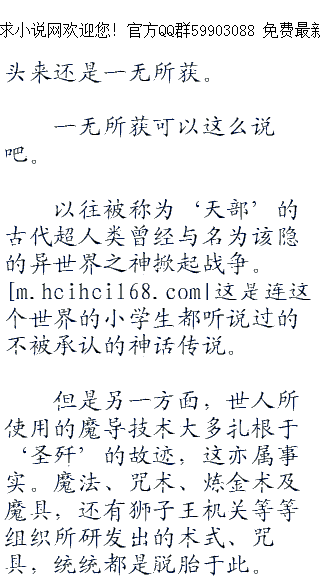 求小说网欢迎您! 官方QQ群59903088 免费最新
头来还是一无所获。
一无所获可以这么说
吧。
以往被称为‘天部’的
古代超人类曾经与名为该隐
的异世界之神掀起战争。
[m.hcihci168.com|这是连这
个世界的小学生都听说过的
不被承认的神话传说。
但是另一方面，世人所
使用的魔导技术大多扎根于
‘圣歼’的故迹，这亦属事
实。魔法、咒术、炼金术及
魔具，还有狮子王机关等等
组织所研发出的术式、咒
具，统统都是脱胎于此。